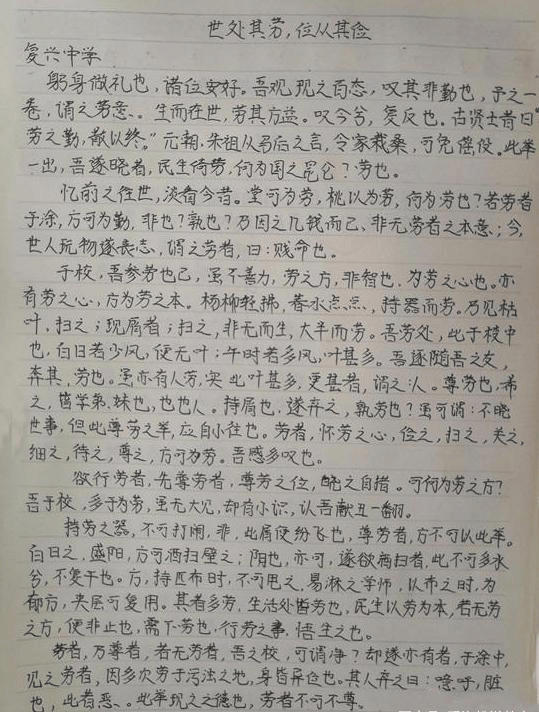 世处其劳，位从其俭
复兴中学
躬身做礼也，诸位安好。吾观现之百态，叹其非勤也，予之一
卷，谓之劳意、。生而在世，劳其方益。叹今兮，复反也。古贤士昔曰"
劳之勤，敬以终。"元朝，朱祖从马后之言，令家栽桑，可免徭役。此举
一出，吾遂晓者，民生倚劳，何为国之昆仑？劳也。
忆前之往世，淡看今昔。堂可为劳，桃以为劳，何为劳也？若劳者
于涂，方可为勤，非也？孰也？乃因之几钱而已、非无劳者之本意；今，
世人玩物遂丧志，谓之劳者，曰：贱命也。
于校，吾参劳也己，虽不善力，劳之方，非智也，为劳之心也。亦
有劳之心，方为劳之本。杨柳轻拂，春水点点，持器而劳。乃见枯
叶，扫之；现屑者；扫之，非无而生，大半而劳。吾劳处，此于校中
也，白日若少风，便无叶；午时若多风，叶甚多。吾逐随吾之友，
弃其，劳也。虽亦有人劳，突此叶甚多，更甚者，谓之人。尊劳也，希
之，皆学弟、妹也，也也人。持屑也，遂弃之，孰劳也？虽可谓：不晓
世事，但此尊劳之举，应自小往也。劳者，怀劳之心，俭之，扫之，关之，
细之，待之，尊之，方可为劳。吾感多叹也。
欲行劳者，先尊劳者，尊劳之位，之自措。可何为劳之方？
吾于校，多于为劳，虽无大见，却有小识，认吾献丑一翻。
持劳之器，不可打闹，非，此屑便纷飞也，尊劳者，方不可以此举。
白日之，盛阳，方可洒扫壁之；阴也，亦可，遂欲洒扫者，此不可多水
兮，不复干也。方，持匹布时，不可甩之，易淋之学师，以布之时，为
郁方，夹层可复用。其者多劳，生活处皆劳也，民生以劳为本，若无劳
之方，便非止也，需下劳也，行劳之事，悟生之也。
劳者，万尊者，者无劳者，吾之校，可谓净？却遂亦有者，于涂中，
见之劳者，因多次劳于污浊之地，身皆异位也。其人弃之曰：噫呼，脏
也，此者恶、。此举现之之德也，劳者不可不尊。